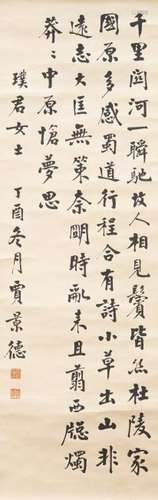 千里関河一瞬馳故人相見鬢皆絲杜陵家
國原多感蜀道行程合有詩小草出山非
遠志大匡無策奈明時亂来且翦西牕燭
莽〻中原愴夢思
璞君女士 丁酉冬月賈景德